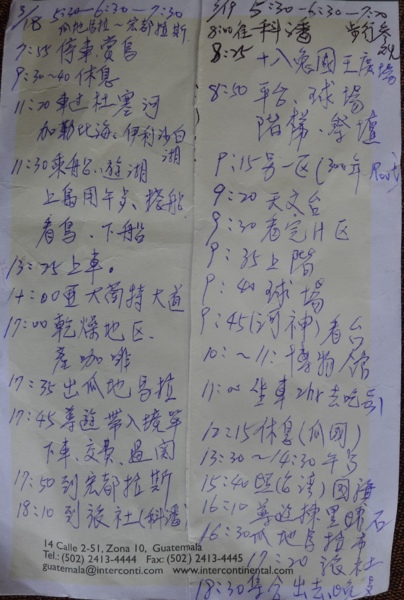 3/18 5:30-6:30-7:30
瓜地馬拉~宏都拉斯
7:55 停車、賞鳥
9:30~40 休息
11:20 車过杜塞河
加勒比海、伊利沙白湖
11:30 乘船、遊湖
上島用午歺、搭船
看鳥、下船
13:25 上車。
14:00 亞大蘭特大道
17:00 乾燥地区
產咖啡
17:35 出瓜地馬拉
17:45 導遊帶入境單
下車、交費、過関
17:50 到宏都拉斯
18:10 到旅社(科潘)
14 Calle 2-51, Zona 10, Guatemala
Tel:(502) 2413-4444 Fax: (502) 2413-4445
guatemala@interconti.com www.intercontinental.com
3/19 5:30-6:30-7:50
8:00 往科潘 步行
8:25 十八兔國王廣場
8:50 平台、球場
階梯、祭壇
9:15 另一区(300年
9:20 天文台
9:30 看完片区
9:35 上階
9:40 球場
9:45 (河神)看台
10:~11: 博物館
11:00 坐車2hr去
12:15 休息(
13:30~14:30 午歺
15:40 照(台湾)國旗
16:10 導遊揀黑曜石
16:30 瓜地馬拉市
17:20 旅社
18:30 集合出去吃